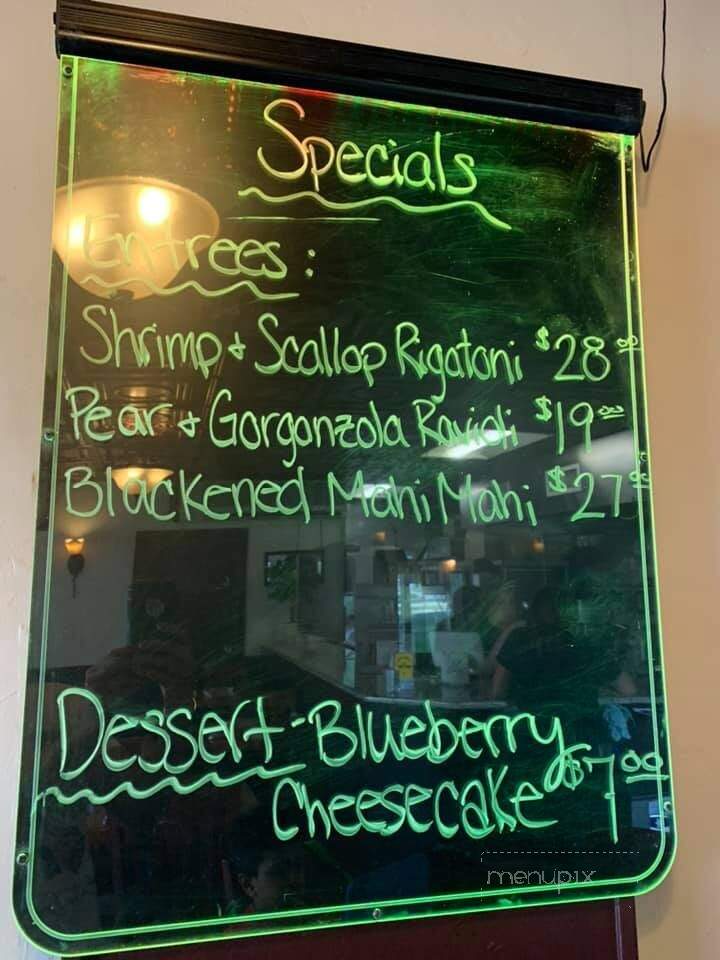 Specials
Entrees:
Shrimp + Scallop Rigatoni $28.00
Pear + Gorgonzola Ravioli $19.00
Blackened Mahi Mahi $27.00
Dessert - Blueberry
Cheesecake $7.00
menupix